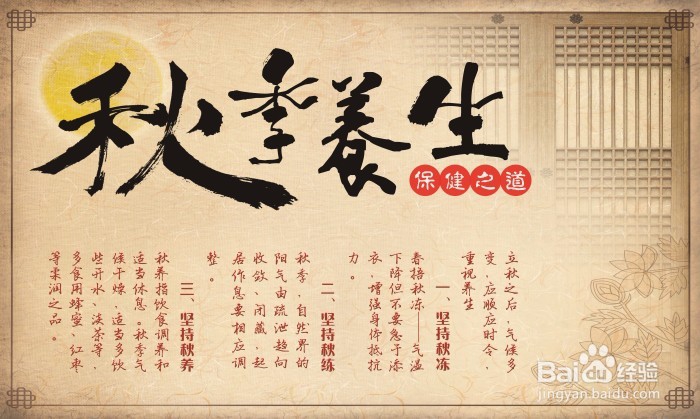 秋季養生
保健之道
立秋之后,气候多
变,应顺应时令,
重视养生
一、坚持秋冻
春捂秋冻——气温
下降但不要急于添
衣,增强身体抵抗
力。
二、坚持秋练
秋季,自然界的
阳气由疏泄趋向
收敛、闭藏,起
居作息要相应调
整。
三、坚持秋养
秋养指饮食调养和
适当休息。秋季气
候干燥,适当多饮
些开水、淡茶等,
多食用蜂蜜,红枣
等柔润之品。
Baidu经验
jingyan.baidu.com